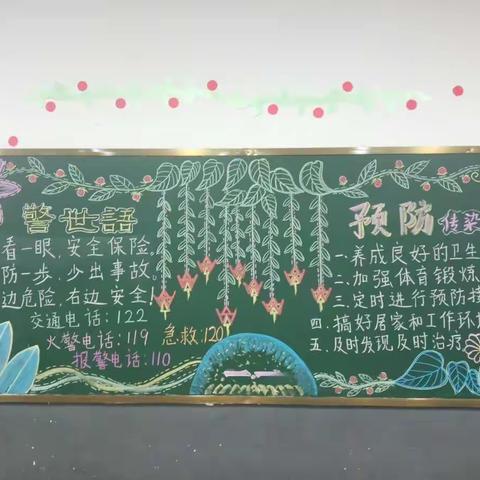 警世語
看一眼,安全保险。
防一步,少出事故。
边危险,右边安全!
交通电话:122
火警电话:119
急救:120
报警电话:110
预防传染
一.养成良好的卫生
二.加强体育锻炼
三.定时进行预防接
四.搞好居家和工作环境
五.及时发现及时治疗